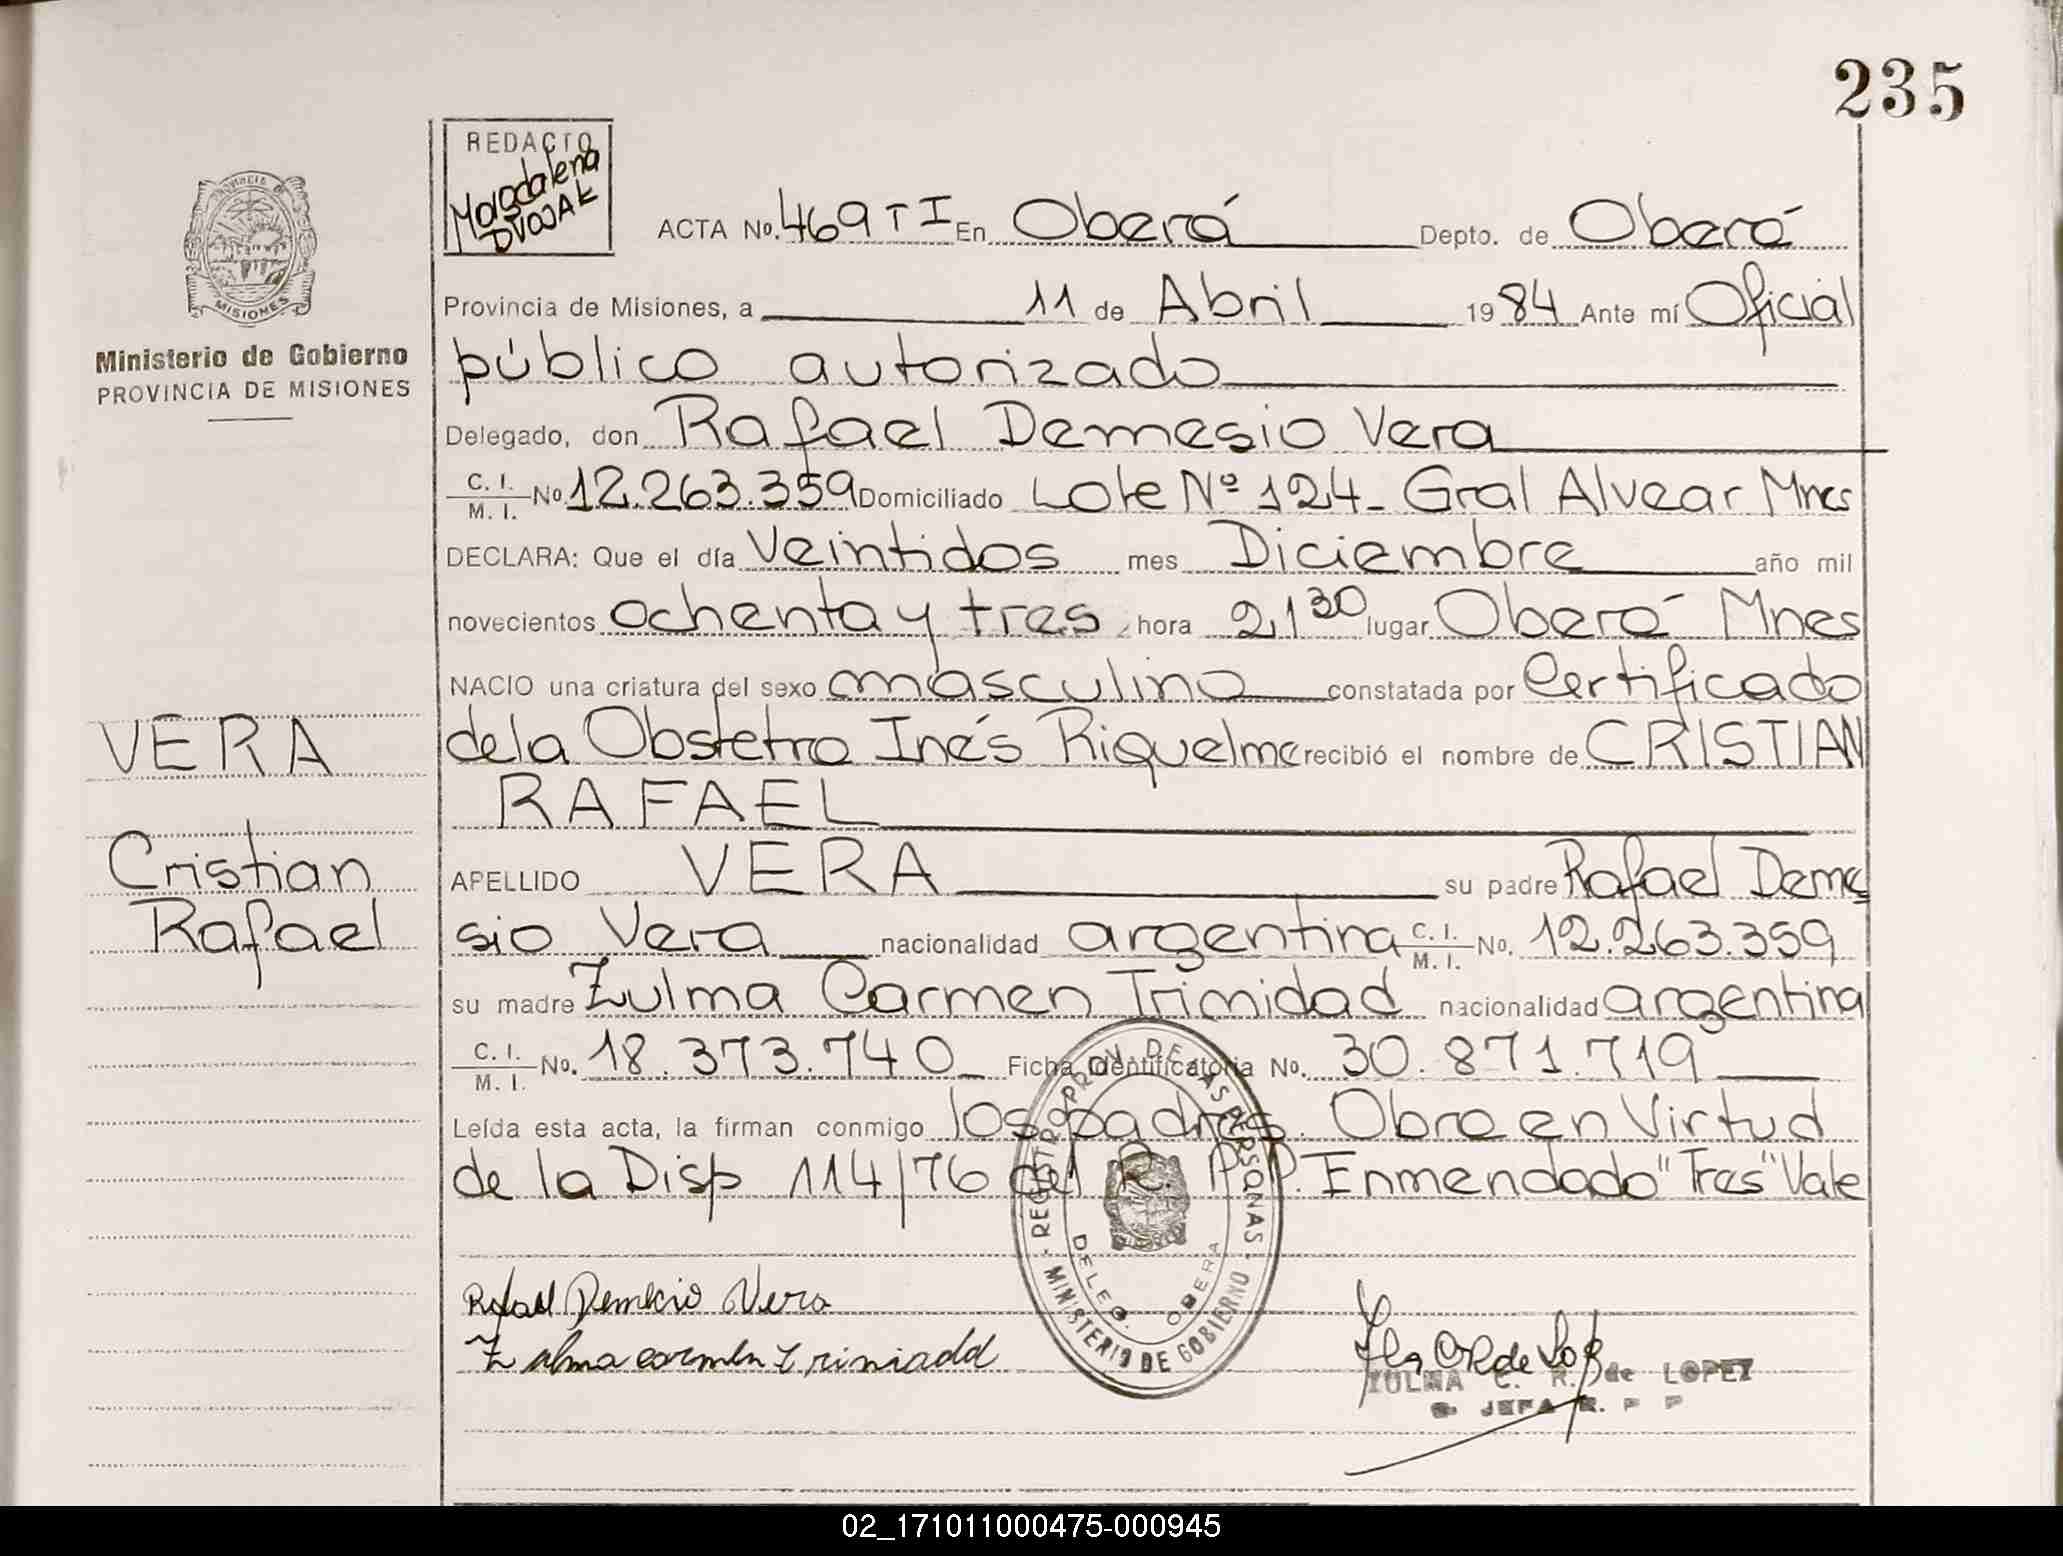 235
REDACTO
Magdalena
DVOJAK
PROVINCIA DE
MISIONES
Ministerio de Gobierno
PROVINCIA DE MISIONES
ACTA No. 469 T I En Oberá Depto. de Oberá
Provincia de Misiones, a 11 de Abril 1984 Ante mí Oficial
público autorizado
Delegado, don Rafael Demesio Vera
C. I. / M. I. No. 12.263.359 Domiciliado Lote Nº 124- Gral Alvear Mnes
DECLARA: Que el día Veintidos mes Diciembre año mil
novecientos ochenta y tres hora 21 30 lugar Oberá Mnes
NACIO una criatura del sexo masculino constatada por Certificado
de la Obstetra Inés Riquelme recibió el nombre de CRISTIAN
RAFAEL
APELLIDO VERA su padre Rafael Deme
sio Vera nacionalidad argentina C. I. / M. I. No. 12.263.359
su madre Zulma Carmen Trinidad nacionalidad argentina
C. I. / M. I. No. 18.373.740 Ficha Identificatoria No. 30.871.719
Leída esta acta, la firman conmigo los padres. Obra en Virtud
de la Disp 114/76 del R. P. P. Enmendado "Tres" Vale
VERA
Cristian
Rafael
REGISTRO PROV. DE LAS PERSONAS
DELEG. OBERA
MINISTERIO DE GOBIERNO
Rafael Demecio Vera
Zulma carmen Triniadd
ZULMA C. R. de LOPEZ
JEFA R. P P
02_171011000475-000945